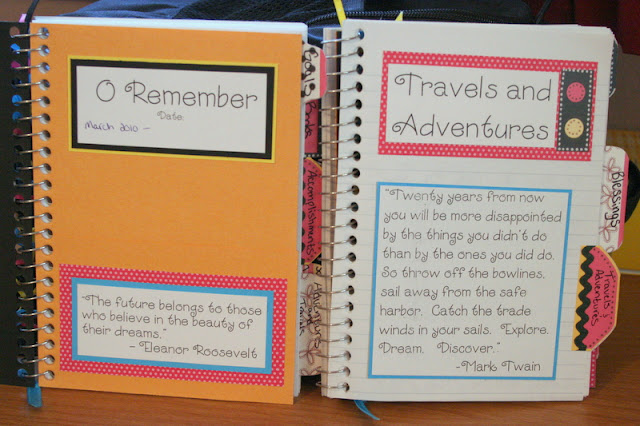 O Remember
Date:
March 2010 -
"The future belongs to those
who believe in the beauty of
their dreams."
- Eleanor Roosevelt
Goals
Accomplishments
Travels and
Adventures
"Twenty years from now
you will be more disappointed
by the things you didn't do
than by the ones you did do.
So throw off the bowlines,
sail away from the safe
harbor. Catch the trade
winds in your sails. Explore.
Dream. Discover."
-Mark Twain
Blessings
Travels &
Adventures